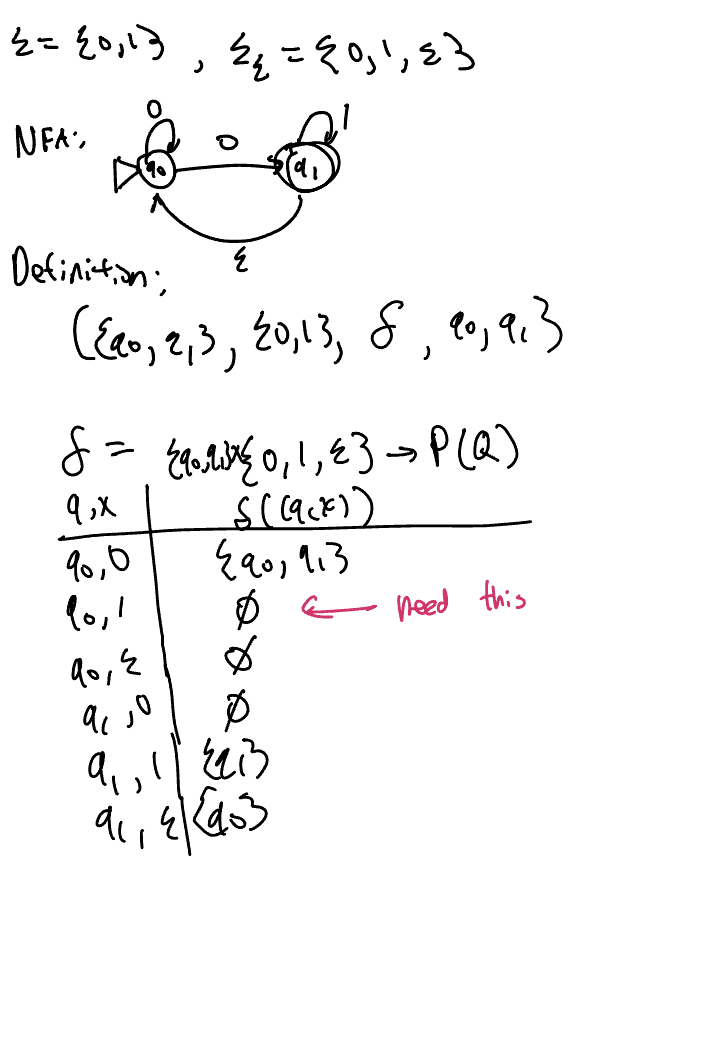 Σ = {0,1} , Σ_ε = {0,1,ε}
0 1
NFA: q0 0 q1
ε
Definition:
({q0, q1}, {0,1}, δ, q0, q1}
δ = {q0,q1}x{0,1,ε} → P(Q)
q,x δ((q,x))
q0,0 {q0, q1}
q0,1 ∅ ← need this
q0,ε ∅
q1,0 ∅
q1,1 {q1}
q1,ε {q0}